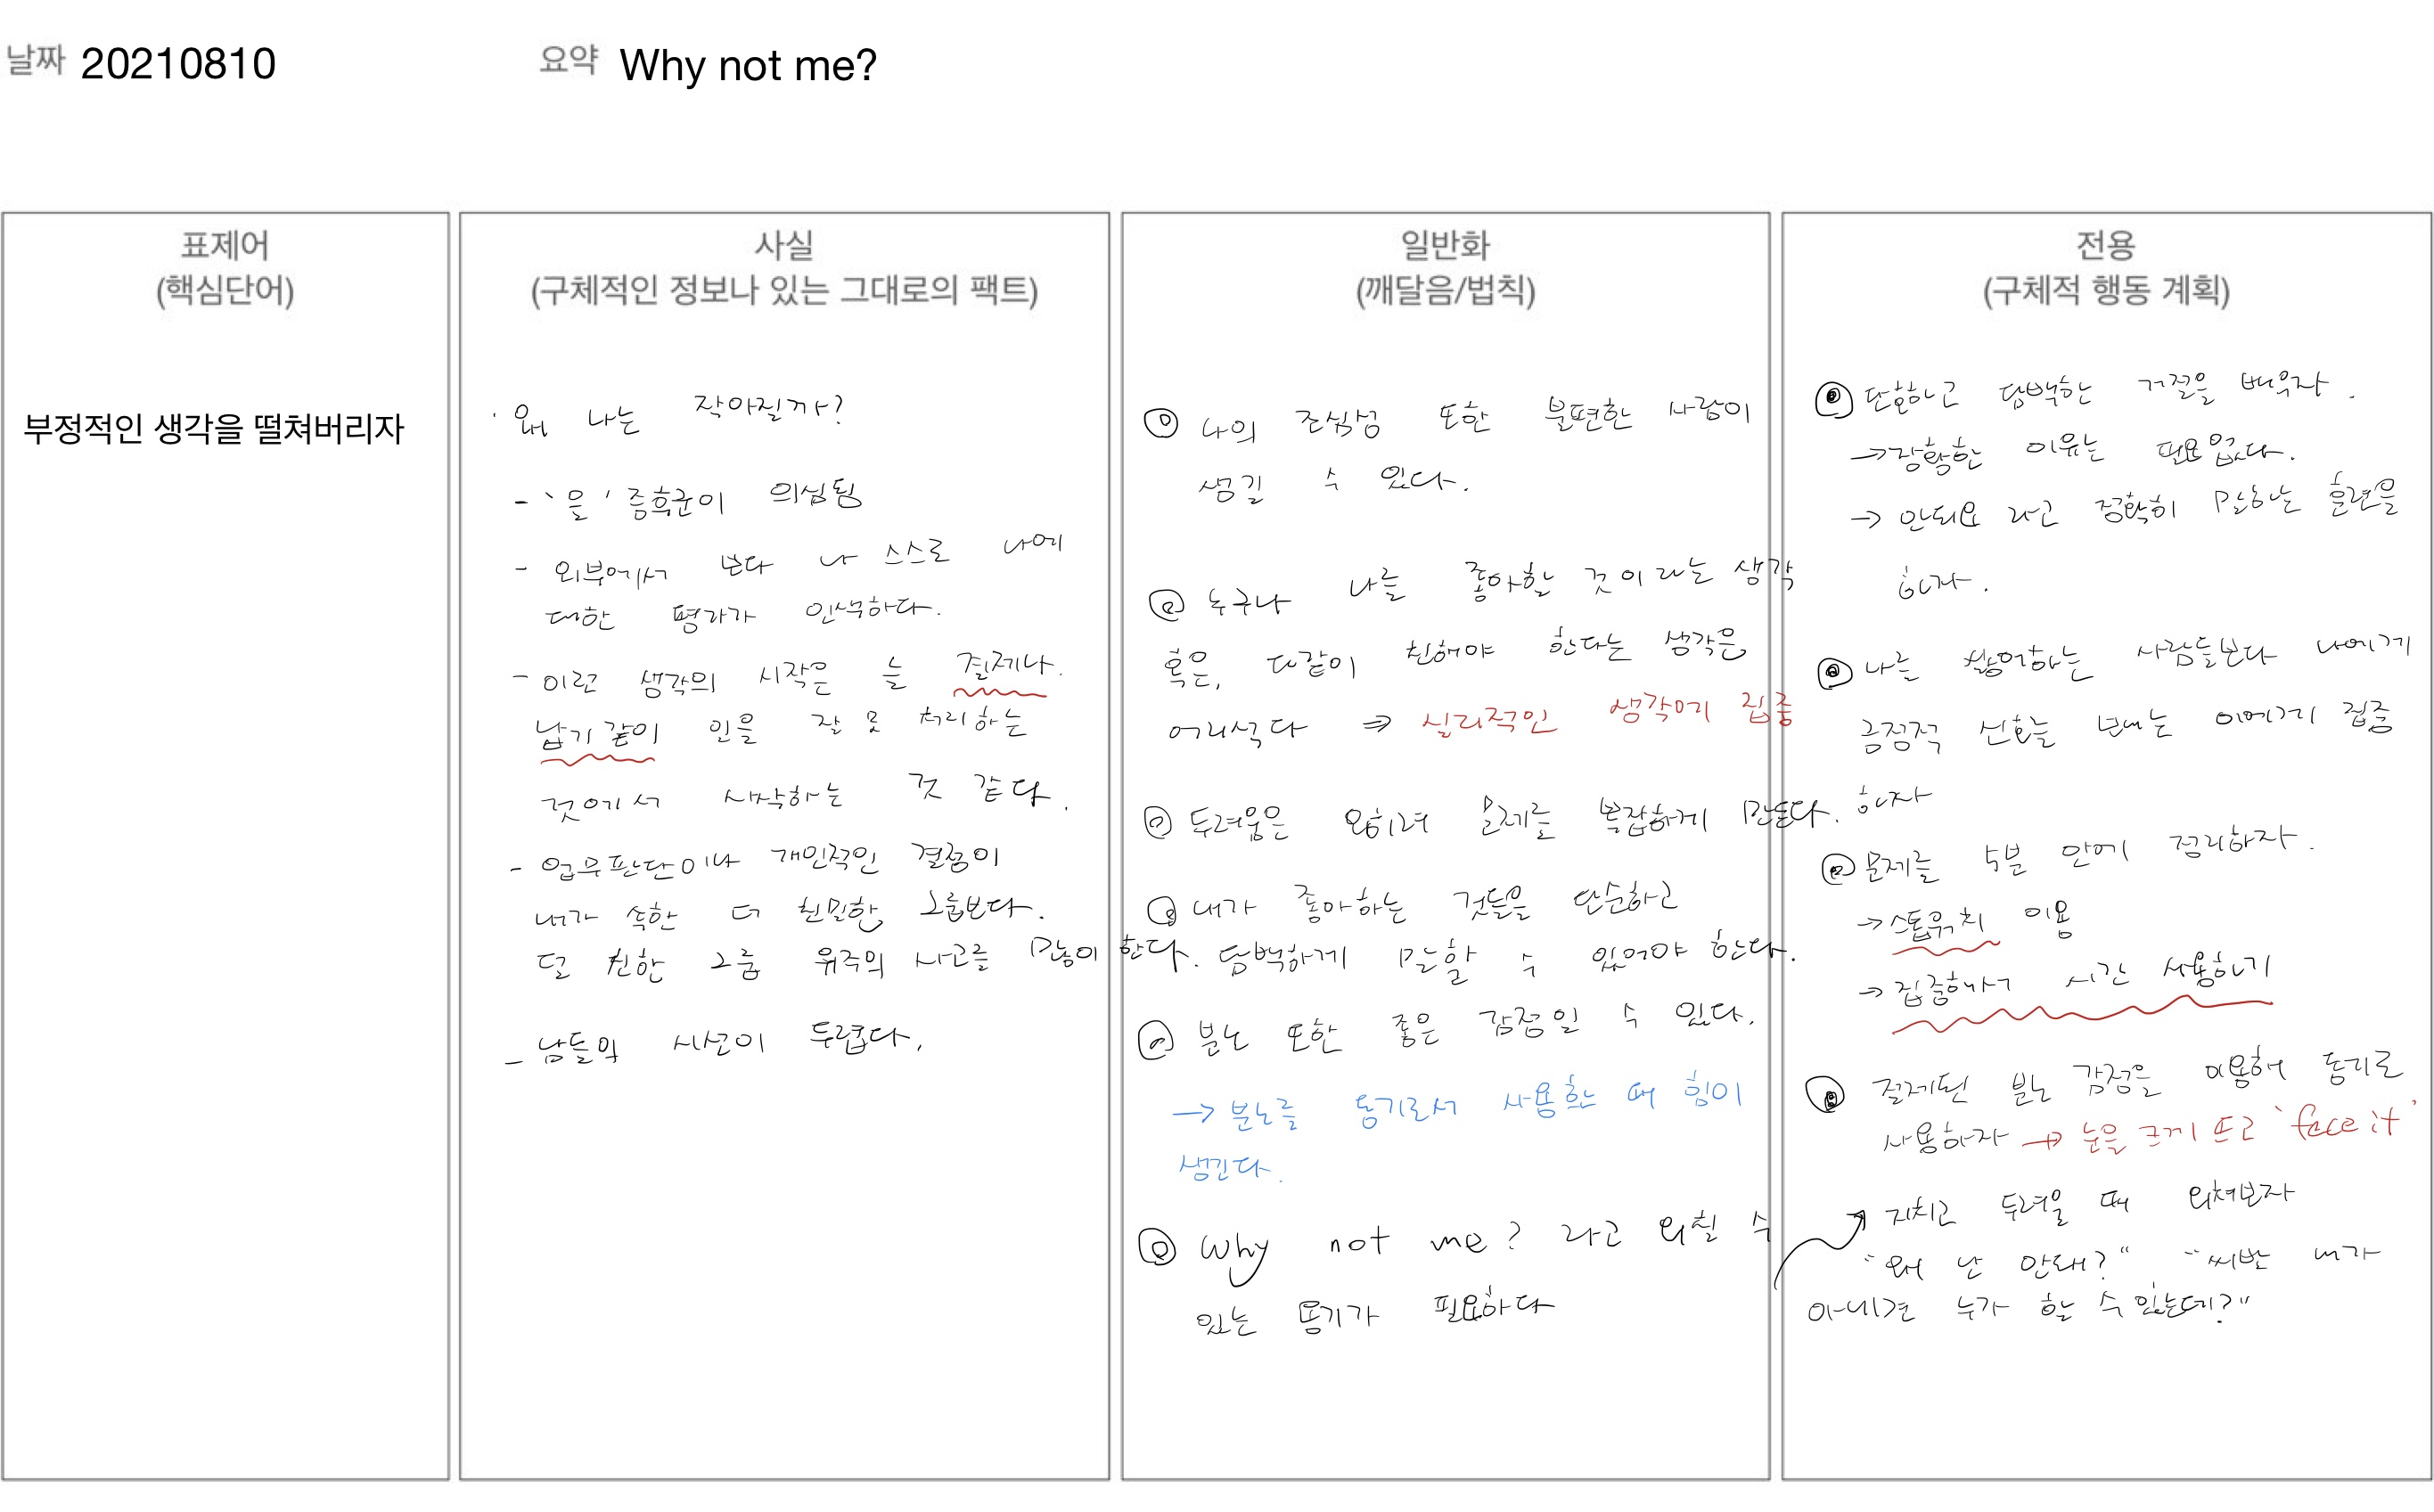 날짜 20210810 요약 Why not me?
표제어
(핵심단어)
부정적인 생각을 떨쳐버리자
사실
(구체적인 정보나 있는 그대로의 팩트)
· 왜 나는 작아질까?
- '을' 증후군이 의심됨
- 외부에서 보다 나 스스로 나에
대한 평가가 인색하다.
- 이런 생각의 시작은 늘 결제나.
납기 같이 일을 잘 못 처리하는
것에서 시작하는 것 같다.
- 업무판단이나 개인적인 결정이
내가 속한 더 친밀한 그룹보다.
덜 친한 그룹 위주의 사고를 많이 한다.
- 남들의 시선이 두렵다.
일반화
(깨달음/법칙)
나의 조심성 또한 불편한 사람이
생길 수 있다.
누구나 나를 좋아할 것이라는 생각
혹은, 다같이 친해야 한다는 생각은
어리석다 ⇒ 실리적인 생각에 집중
두려움은 오히려 문제를 복잡하게 만든다.
내가 좋아하는 것들을 단순하고
담백하게 말할 수 있어야 한다.
분노 또한 좋은 감정일 수 있다.
→ 분노를 동기로서 사용할 때 힘이
생긴다.
Why not me? 라고 외칠 수
있는 용기가 필요하다
전용
(구체적 행동 계획)
단호하고 담백한 거절을 배우자.
→ 장황한 이유는 필요없다.
→ 안되요 라고 정확히 말하는 훈련을
하자.
나를 싫어하는 사람들보다 나에게
긍정적 선호를 보내는 이에게 집중
하자
문제를 5분 안에 정리하자.
→ 스톱워치 이용
→ 집중해서 시간 사용하기
절제된 분노 감정을 이용해 동기로
사용하자 → 눈을 크게 뜨고 'face it'
지치고 두려울 때 외쳐보자
"왜 난 안돼?" "씨발 내가
아니면 누가 할 수 있는데?"